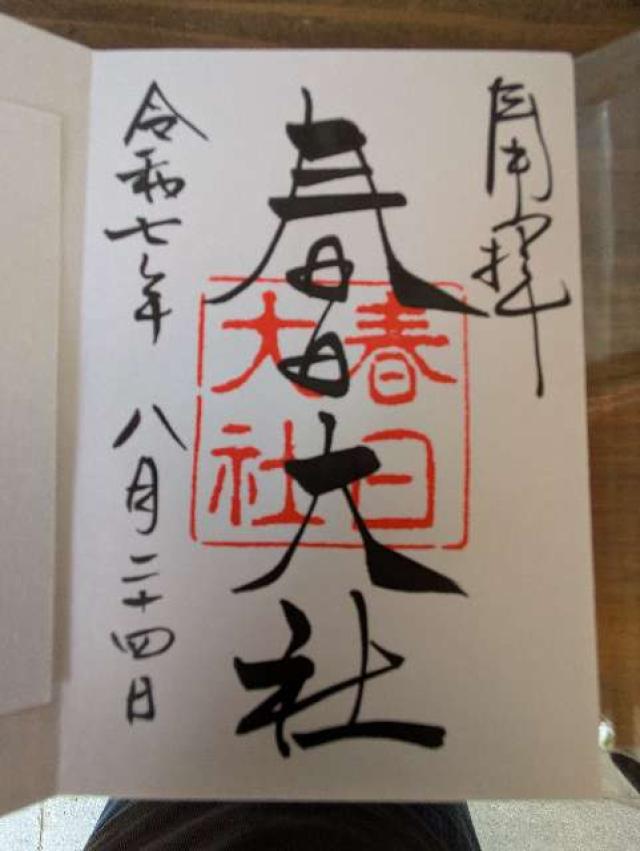 奉拝
春日大社
春日
大社
令和七年 八月二十四日